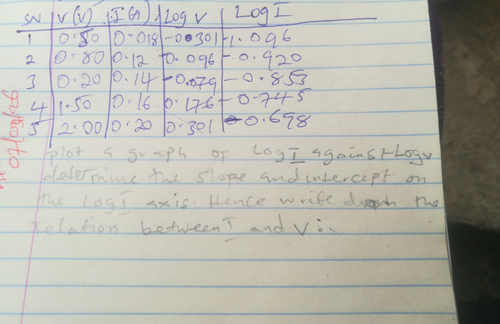 SN V(V) I(A) Log V Log I
1 0.50 0.018 -0.301 -1.096
2 0.80 0.12 -0.096 -0.920
3 0.20 0.14 -0.079 -0.853
4 1.50 0.16 0.176 -0.745
5 2.00 0.20 0.301 -0.698
plot a graph of Log I against Log v
determine the slope and intercept on
the Log I axis. Hence write down the
relation between I and V